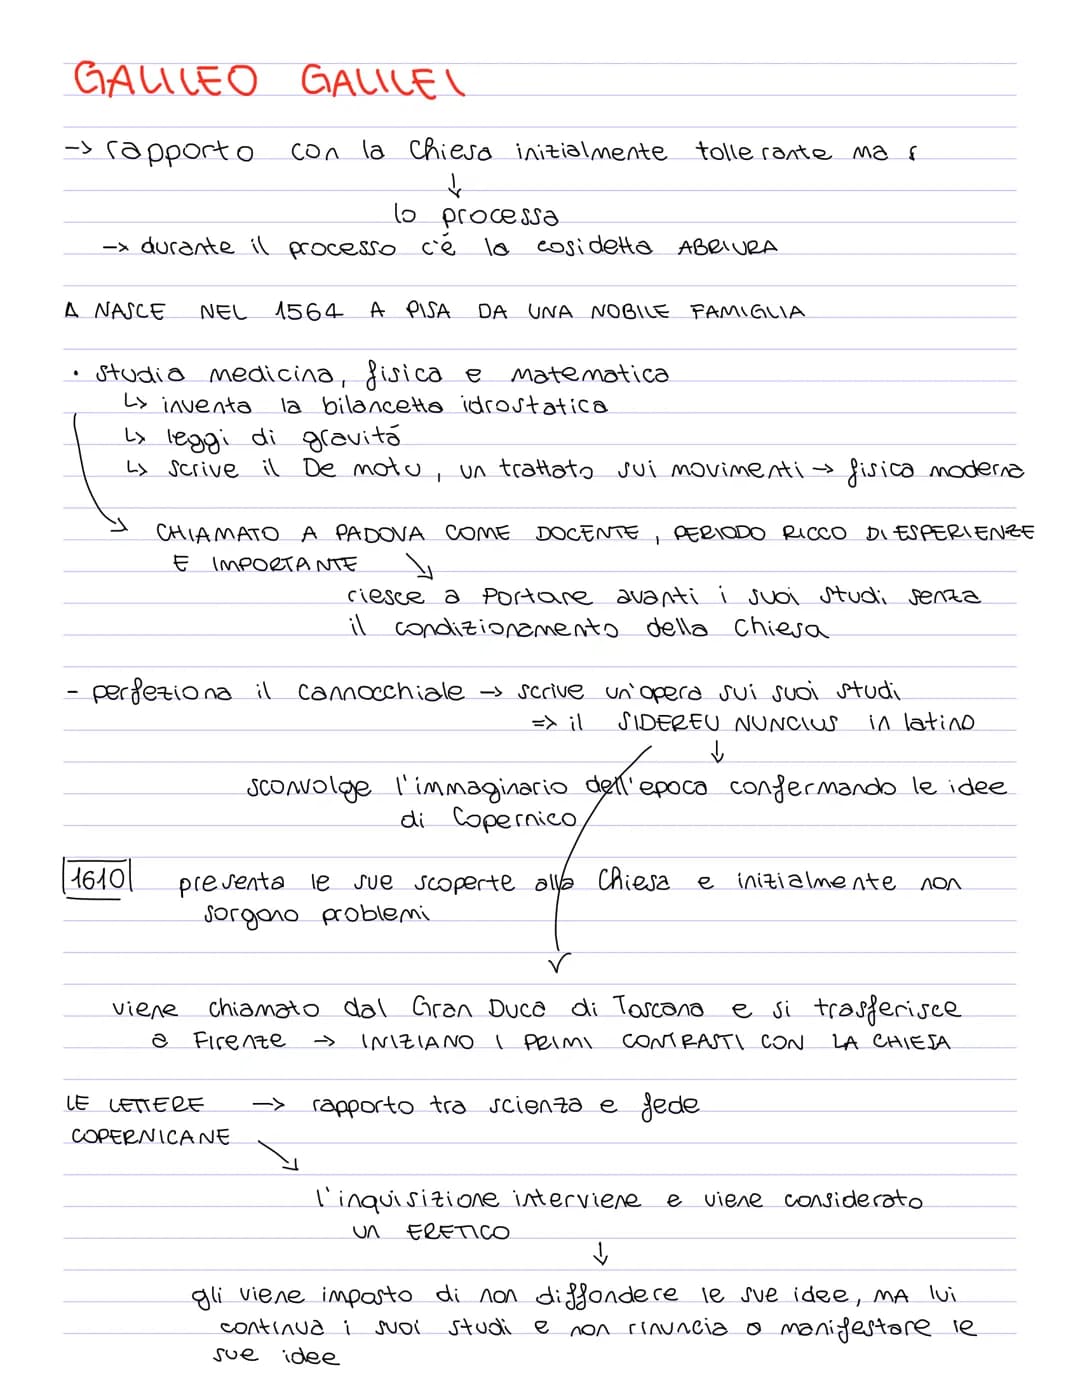 GALILEO GALILEI
-> rapporto con la Chiesa inizialmente tollerante ma
↓
lo processa
-> durante il processo c'é la cosidetta ABRIURA
Δ NASCE NEL 1564 A PISA DA UNA NOBILE FAMIGLIA
• studia medicina, fisica e matematica
↳ inventa la bilancetta idrostatica
↳ leggi di gravitá
↳ scrive il De motu, un trattato sui movimenti → fisica moderna
CHIAMATO A PADOVA COME DOCENTE, PERIODO RICCO DI ESPERIENZE
E IMPORTANTE ↘
riesce a portare avanti i suoi studi senza
il condizionamento della Chiesa
- perfeziona il cannocchiale → scrive un'opera sui suoi studi
=> il SIDEREU NUNCIUS in latino
↓
sconvolge l'immaginario dell'epoca confermando le idee
di Copernico
1610 presenta le sue scoperte alla Chiesa e inizialmente non
sorgono problemi
viene chiamato dal Gran Duca di Toscana e si trasferisce
a Firenze → INIZIANO I PRIMI CONTRASTI CON LA CHIESA
LE LETTERE -> rapporto tra scienza e fede
COPERNICANE
↘
l'inquisizione interviene e viene considerato
un ERETICO
↓
gli viene imposto di non diffondere le sue idee, MA lui
continua i suoi studi e non rinuncia a manifestare le
sue idee